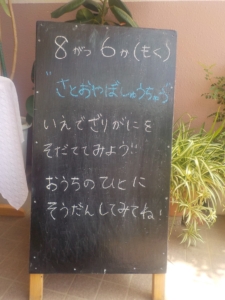 8がつ6か(もく)
"さとおやぼしゅうちゅう"
いえでざりがにを
そだててみよう!!
おうちのひとに
そうだんしてみてね!